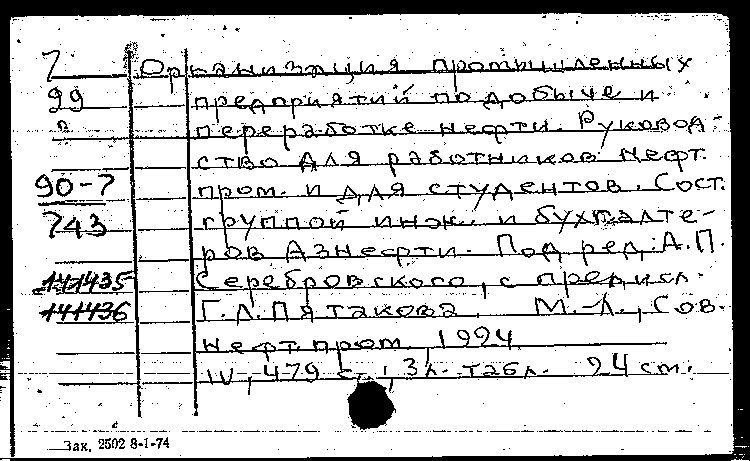 7 Организация промышленных
99 предприятий по добыче и
п переработке нефти. Руковод-
ство для работников нефт.
90-7 пром. и для студентов. Сост.
743 группой инж. и бухгалте-
ров Азнефти. Под ред. А.П.
141435 Серебровского, с предисл.
141436 Г.Л. Пятакова. М.-Л., Сов.
нефт. пром. 1924
IV, 479 с., 3 л. табл. 24 см.
Зак. 2502 8-1-74